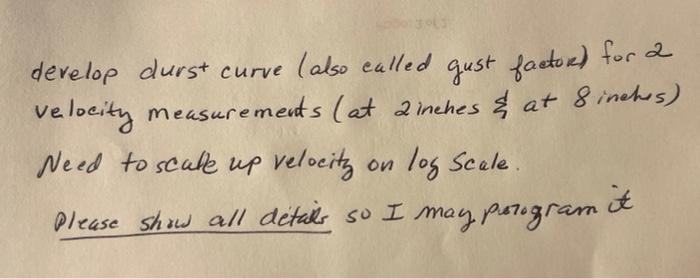 develop durst curve (also called gust factor) for 2
velocity measurements (at 2 inches & at 8 inches)
Need to scale up velocity on log scale.
Please show all details so I may program it